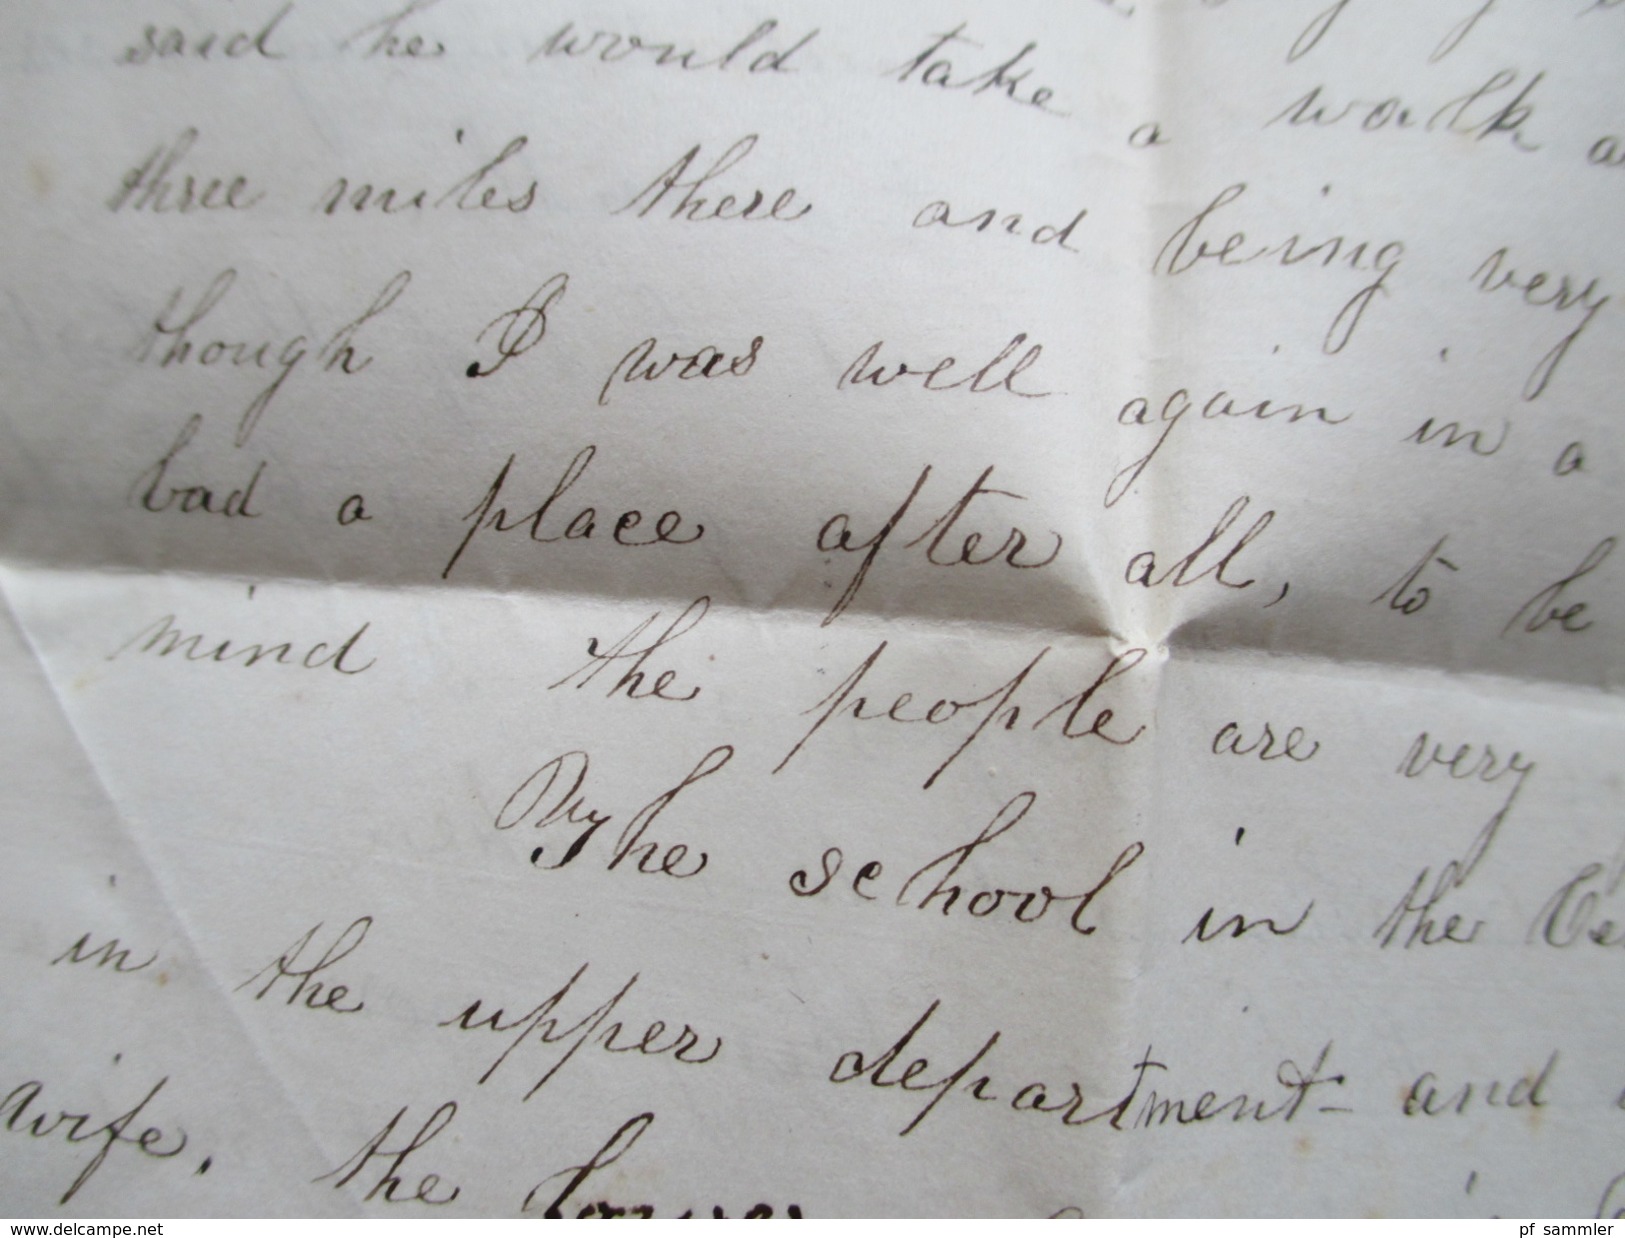 said he would take a walk a
three miles there and being very
though I was well again in a
bad a place after all, to be
mind the people are very
The school in the
in the upper department - and
wife. the lower
www.delcampe.net
pf_sammler